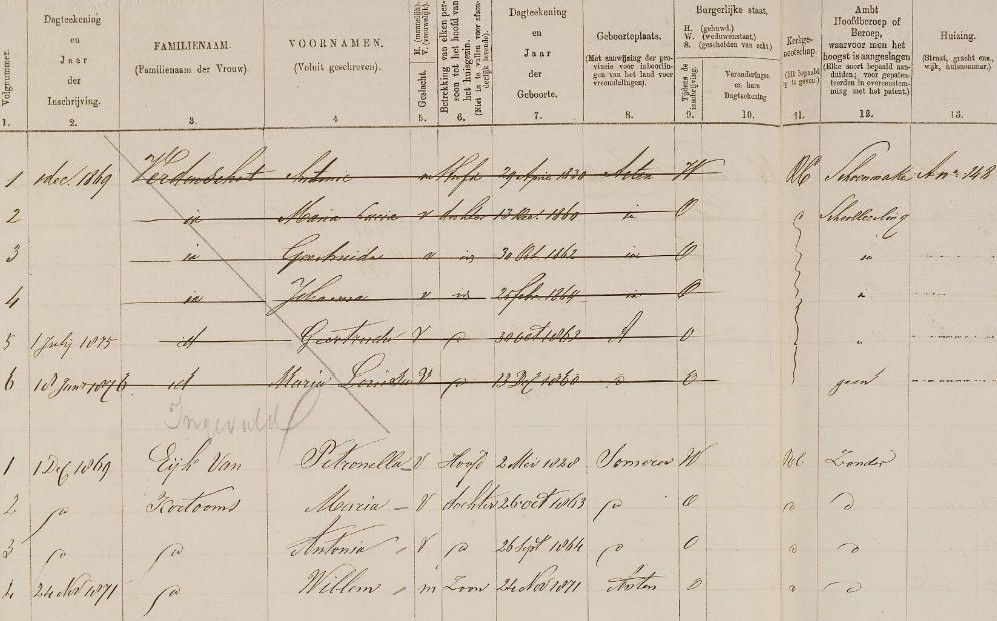 Volgnummer.
Dagteekening en Jaar der Inschrijving.
FAMILIENAAM. (Familienaam der Vrouw).
VOORNAMEN. (Voluit geschreven).
Geslacht M. (mannelijk). V. (vrouwelijk).
Betrekking van elken persoon tot het hoofd van het huisgezin.
Dagteekening en Jaar der Geboorte.
Geboorteplaats. (Met aanwijzing der provincie voor inboorlingen van het land voor vreemdelingen).
Burgerlijke staat.
H. (gehuwd).
W. (weduwenstaat).
S. (gescheiden van echt).
Tijdens de inschrijving.
Veranderingen en hare Dagteekening
Kerkgenootschap.
Ambt Hoofdberoep of Beroep, waarvoor men het hoogst is aangeslagen
Huizing. (Straat, gracht enz., wijk, huisnummer.)
1. 2. 3. 4 5. 6. 7. 8. 9. 10. 11. 12. 13.
1 1 dec. 1869 Verdenschot Antonie m Hoofd 29 April 1830 Asten W RC Schoenmaker A no 148
2 id Maria Lucia v 13 1860 id O
3 id v id 30 Oct. 1862 id O id
4 id Johanna v id 25 febr. 1864 id O
5 1 July 1875 id Geertruda V do 30 oct 1862 A O
6 1876 id Maria V do 13 Dec 1860 do O geen
Ingevuld
1 1 Dec 1869 Eijk Van Petronella V Hoofd 2 Mei 1828 Someren W RC Zonder
2 do Kortooms Maria V dochter 26 oct 1863 do O do do
3 do do Antonia V do 26 Sept 1864 do O do do
4 24 Nov 1871 do Willem m Zoon 24 Nov 1871 Asten O do do